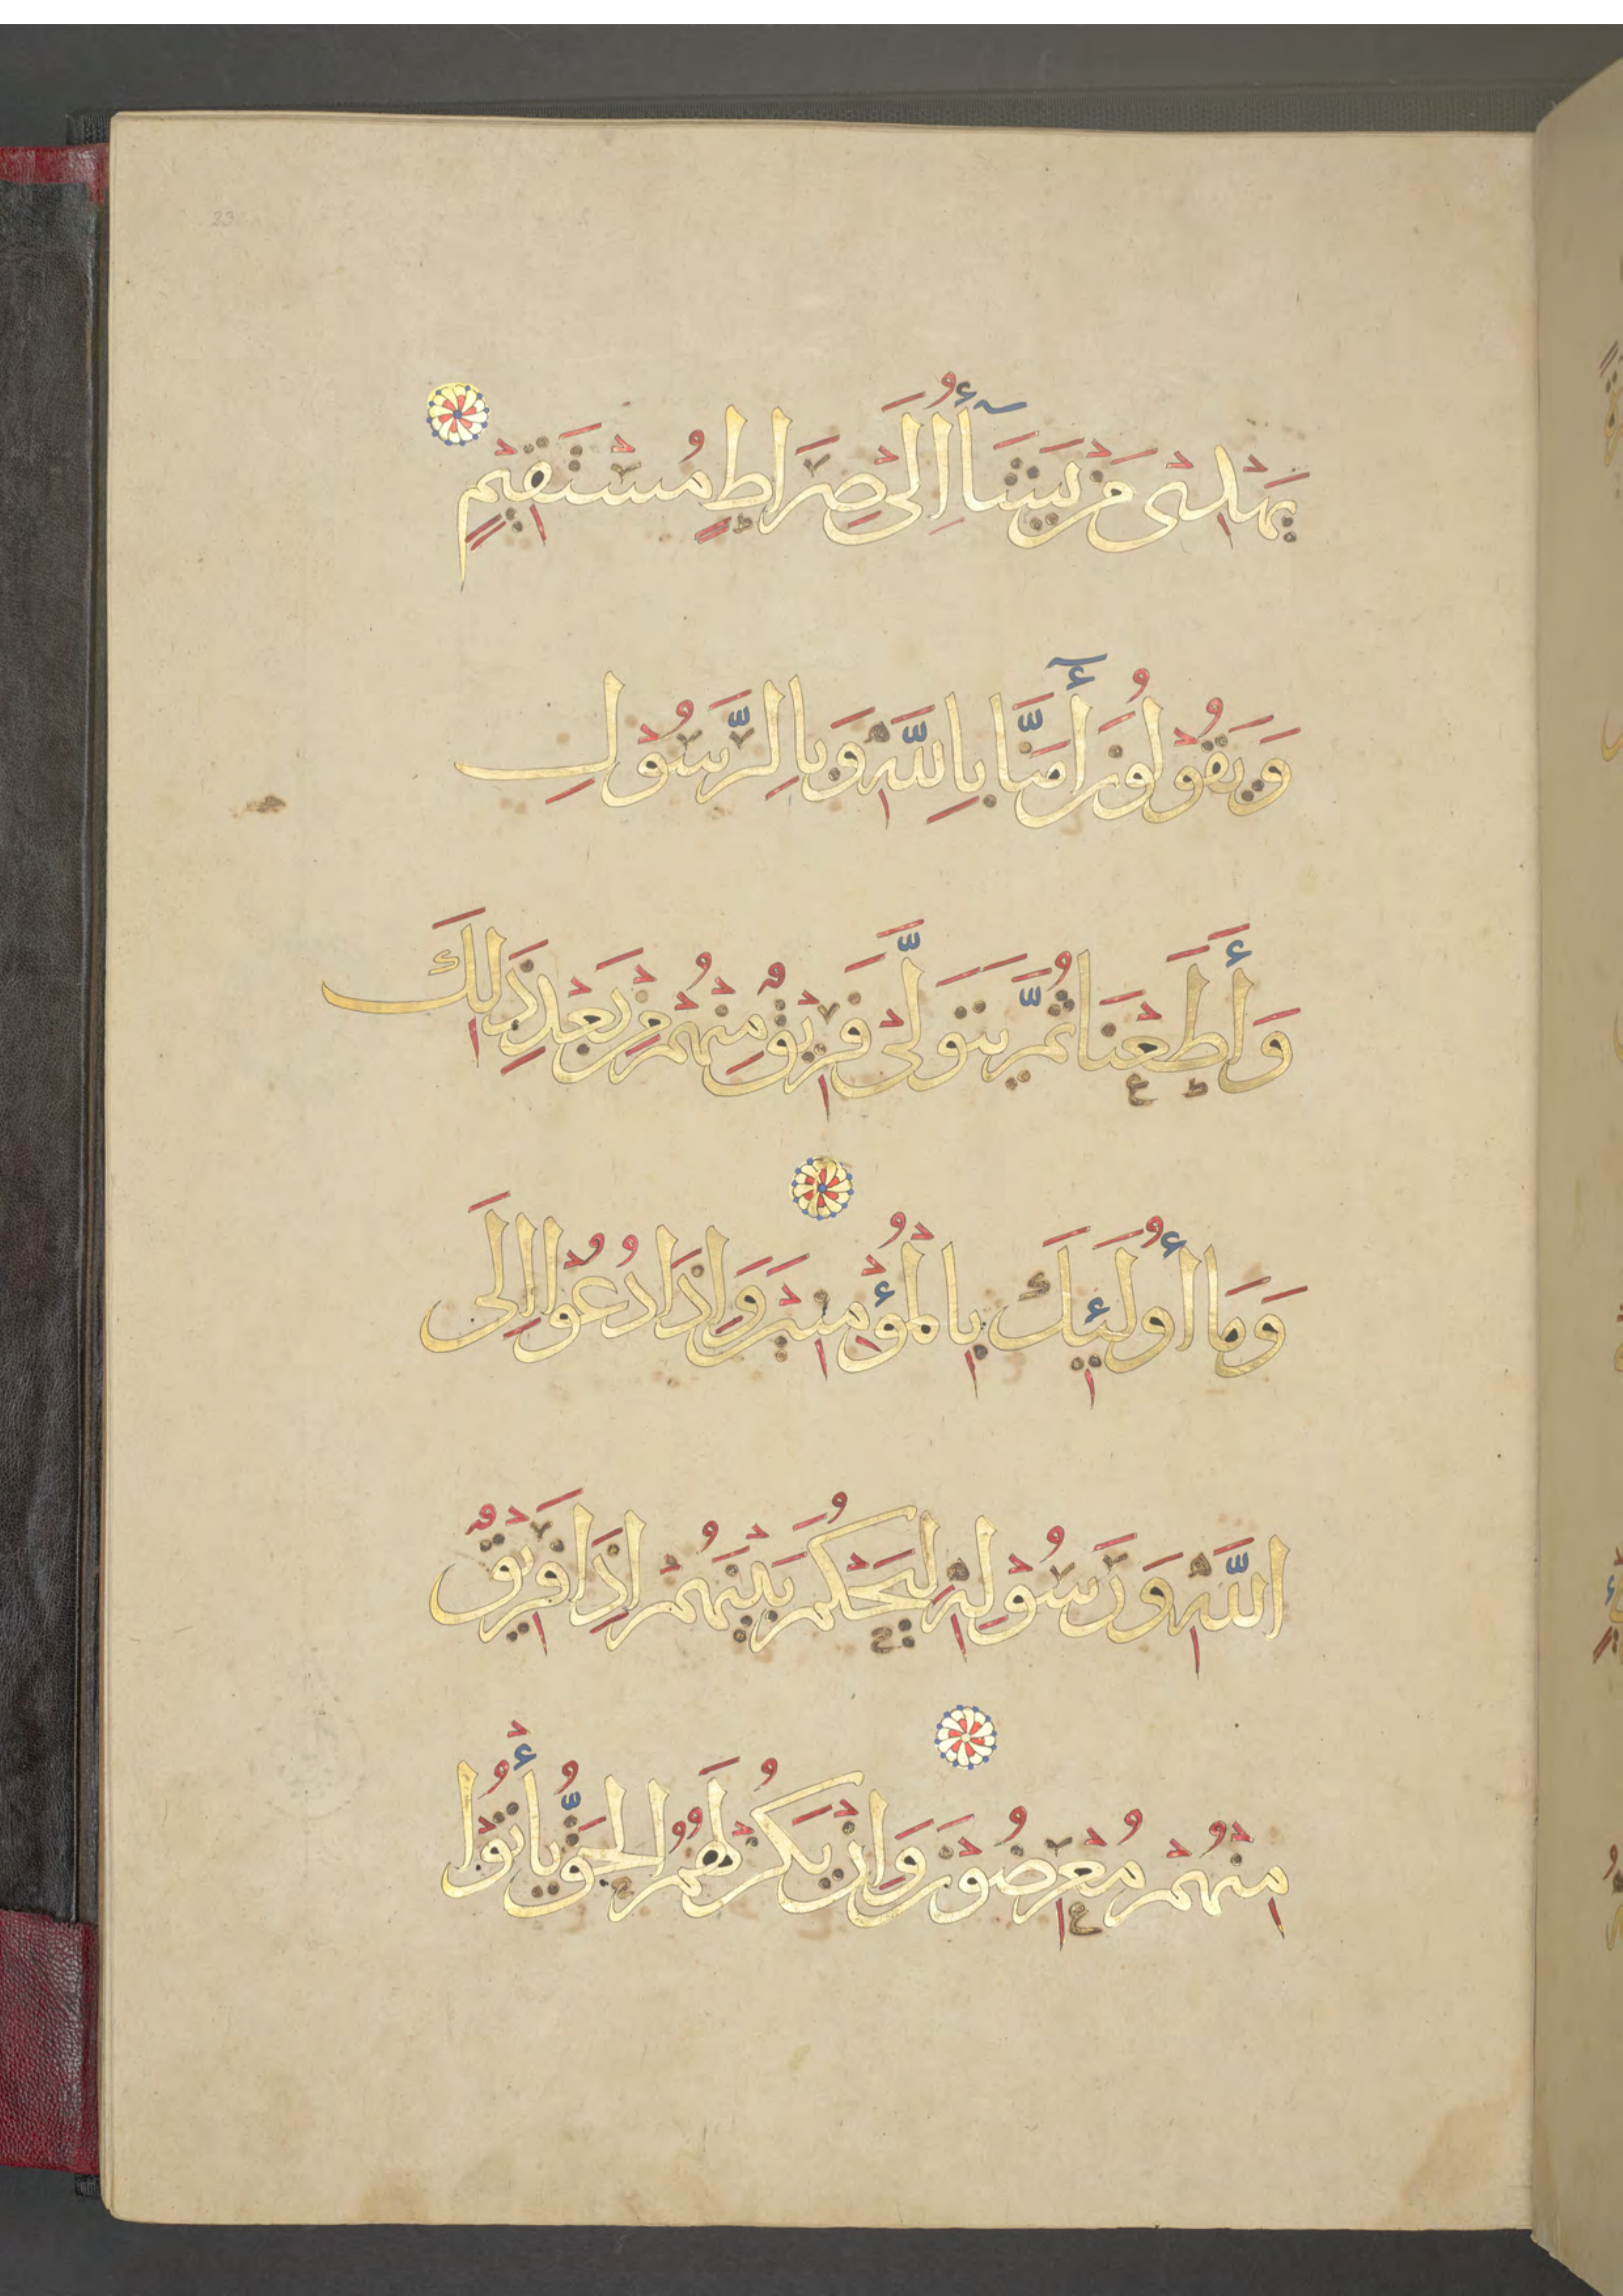 يَهْدِيْ مَنْ يَشَآأُ إِلَى صِرَاطٍ مُسْتَقِيْمٍ
وَيَقُوْلُوْنَ أٓمَنَّا بِاللَّهِ وَبِالرَّسُوْلِ
وَأَطَعْنَا ثُمَّ يَتَوَلَّىْ فَرِيْقٌ مِنْهُمْ مِنْ بَعْدِ ذَلِكَ
وَمَا أُوْلَئِكَ بِالْمُؤْمِنِيْنَ وَإِذَا دُعُوْا إِلَى
اللَّهِ وَرَسُوْلِهِ لِيَحْكُمَ بَيْنَهُمْ إِذَا فَرِيْقٌ
مِنْهُمْ مُعْرِضُوْنَ وَإِنْ يَكُنْ لَهُمُ الْحَقُّ يَأْتُوْا
23